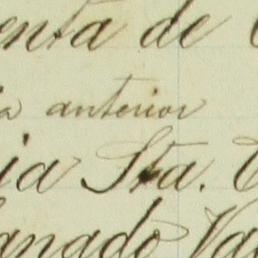 enta de
a anterior
ia Sta.
anado Va